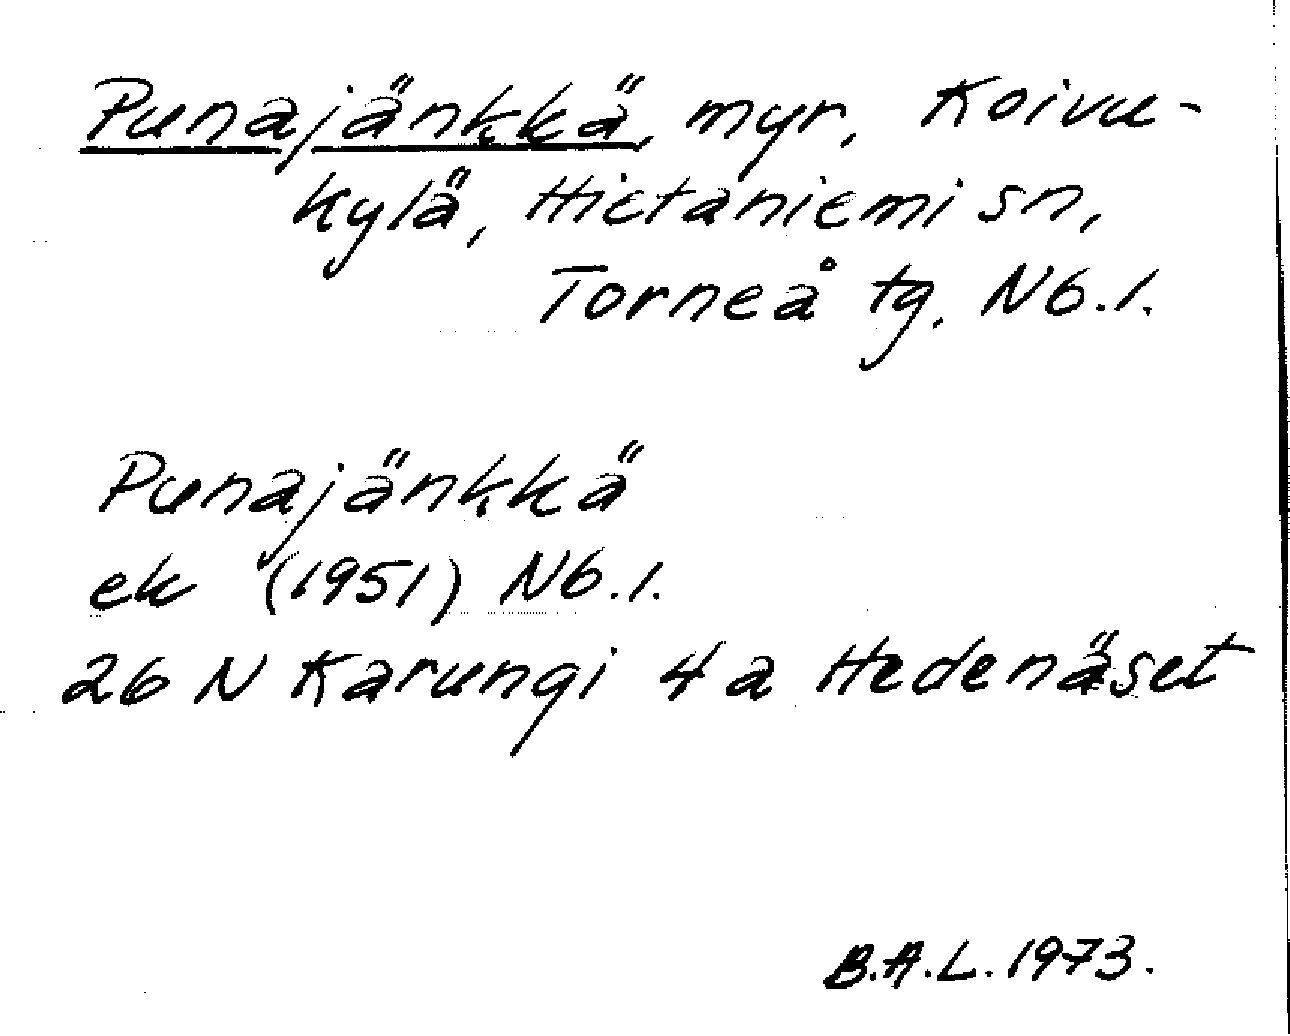 Punajänkkä, myr, Koivu-
kylä, Hietaniemi sn,
Torneå tg, Nb.l.
Punajänkkä
ek (1951) Nb.l.
26 N Karungi 4 a Hedenäset
B.A.L. 1973.